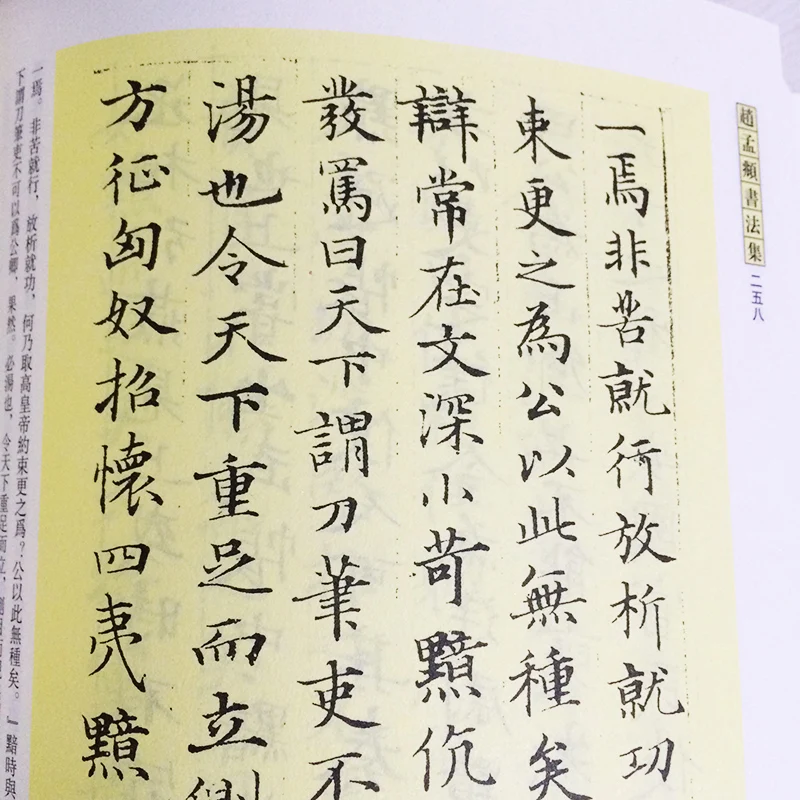 趙孟頫書法集
二五八
一焉非苦就行放析就功
束更之為公以此無種矣
辯常在文深小苛黯伉
發罵曰天下謂刀筆吏不
湯也令天下重足而立側
方征匈奴招懷四夷黯
一焉。非苦就行，放析就功，何乃取高皇帝約束更之爲？公以此無種矣。』黯時與
下謂刀筆吏不可以爲公卿，果然。必湯也，令天下重足而立，